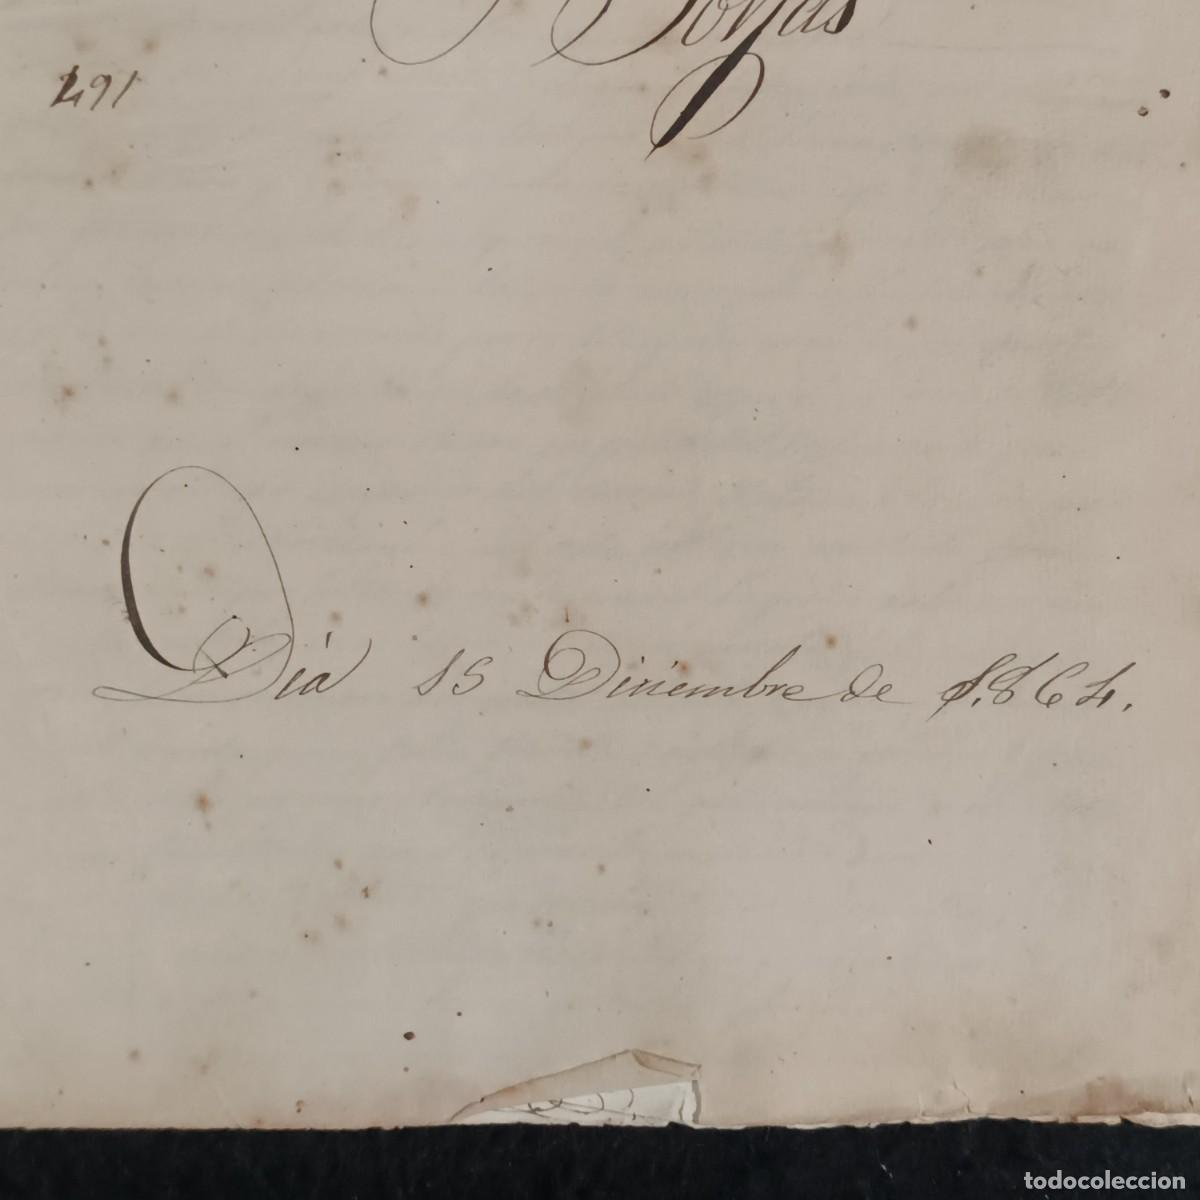 Borjas
491
Día 15 Diciembre de 1.864.
todocoleccion